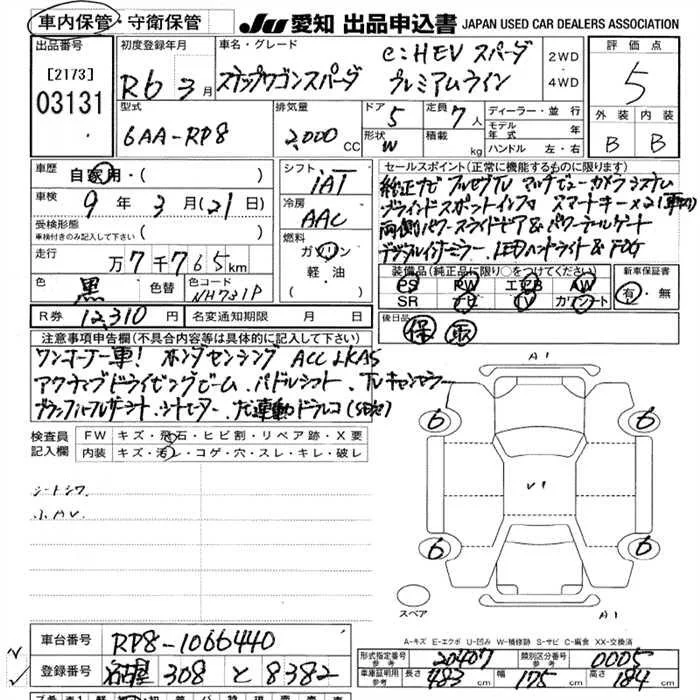 車内保管・守衛保管 JU 愛知 出品申込書 JAPAN USED CAR DEALERS ASSOCIATION
出品番号 初度登録年月 車名・グレード 評価点
[2173] R6 3月 ステップワゴンスパーダ e:HEV スパーダ 2WD 5
03131 プレミアムライン 4WD
型式 排気量 ドア 5 定員 7人 ディーラー・並行 外装 内装
6AA-RP8 2,000 CC 形状 W 積載 kg モデル年式 年 B B
ハンドル 左・右
車歴 自家用・( ) シフト セールスポイント(正常に機能するものに限ります)
車検 9年 3月(21日) iAT 純正ナビ フルセグTV マルチビューカメラシステム
受検形態 冷房 ブラインドスポットインフォ スマートキー×2
車検付きのみ記入して下さい ( ) AAC 両側パワースライドドア&パワーテールゲート
走行 万7千765km 燃料 ガソリン デジタルインナーミラー、LEDヘッドライト&FOG
軽油 装備品(純正品に限り○をつけてください) 新車保証書
色 黒 色替 色コード NH731P PS PW エアB AW 有・無
SR ナビ TV カワシート
R券 12,310円 名変通知期限 月 日 後日品 保 取
注意事項申告欄(不具合内容等は具体的に記入して下さい)
ワンオーナー車! ホンダセンシング ACC LKAS
アクティブドライビングビーム、パドルシフト、TVキャンセラー
シートヒーター、ナビ連動ドラレコ
検査員 FW キズ・飛石・ヒビ割・リペア跡・X要
記入欄 内装 キズ・汚レ・コゲ・穴・スレ・キレ・破レ
シートシワ
A1
6 6
V1
6 6
スペア A1
A-キズ E-エクボ U-凹み W-補修跡 S-サビ C-腐食 XX-交換済
車台番号 RP8-1066440
登録番号 名古屋 308 と 8382
形式指定番号 参考 20407 類別区分番号 参考 0005
車庫証明用 参考 長さ 483cm 幅 175cm 高さ 184cm